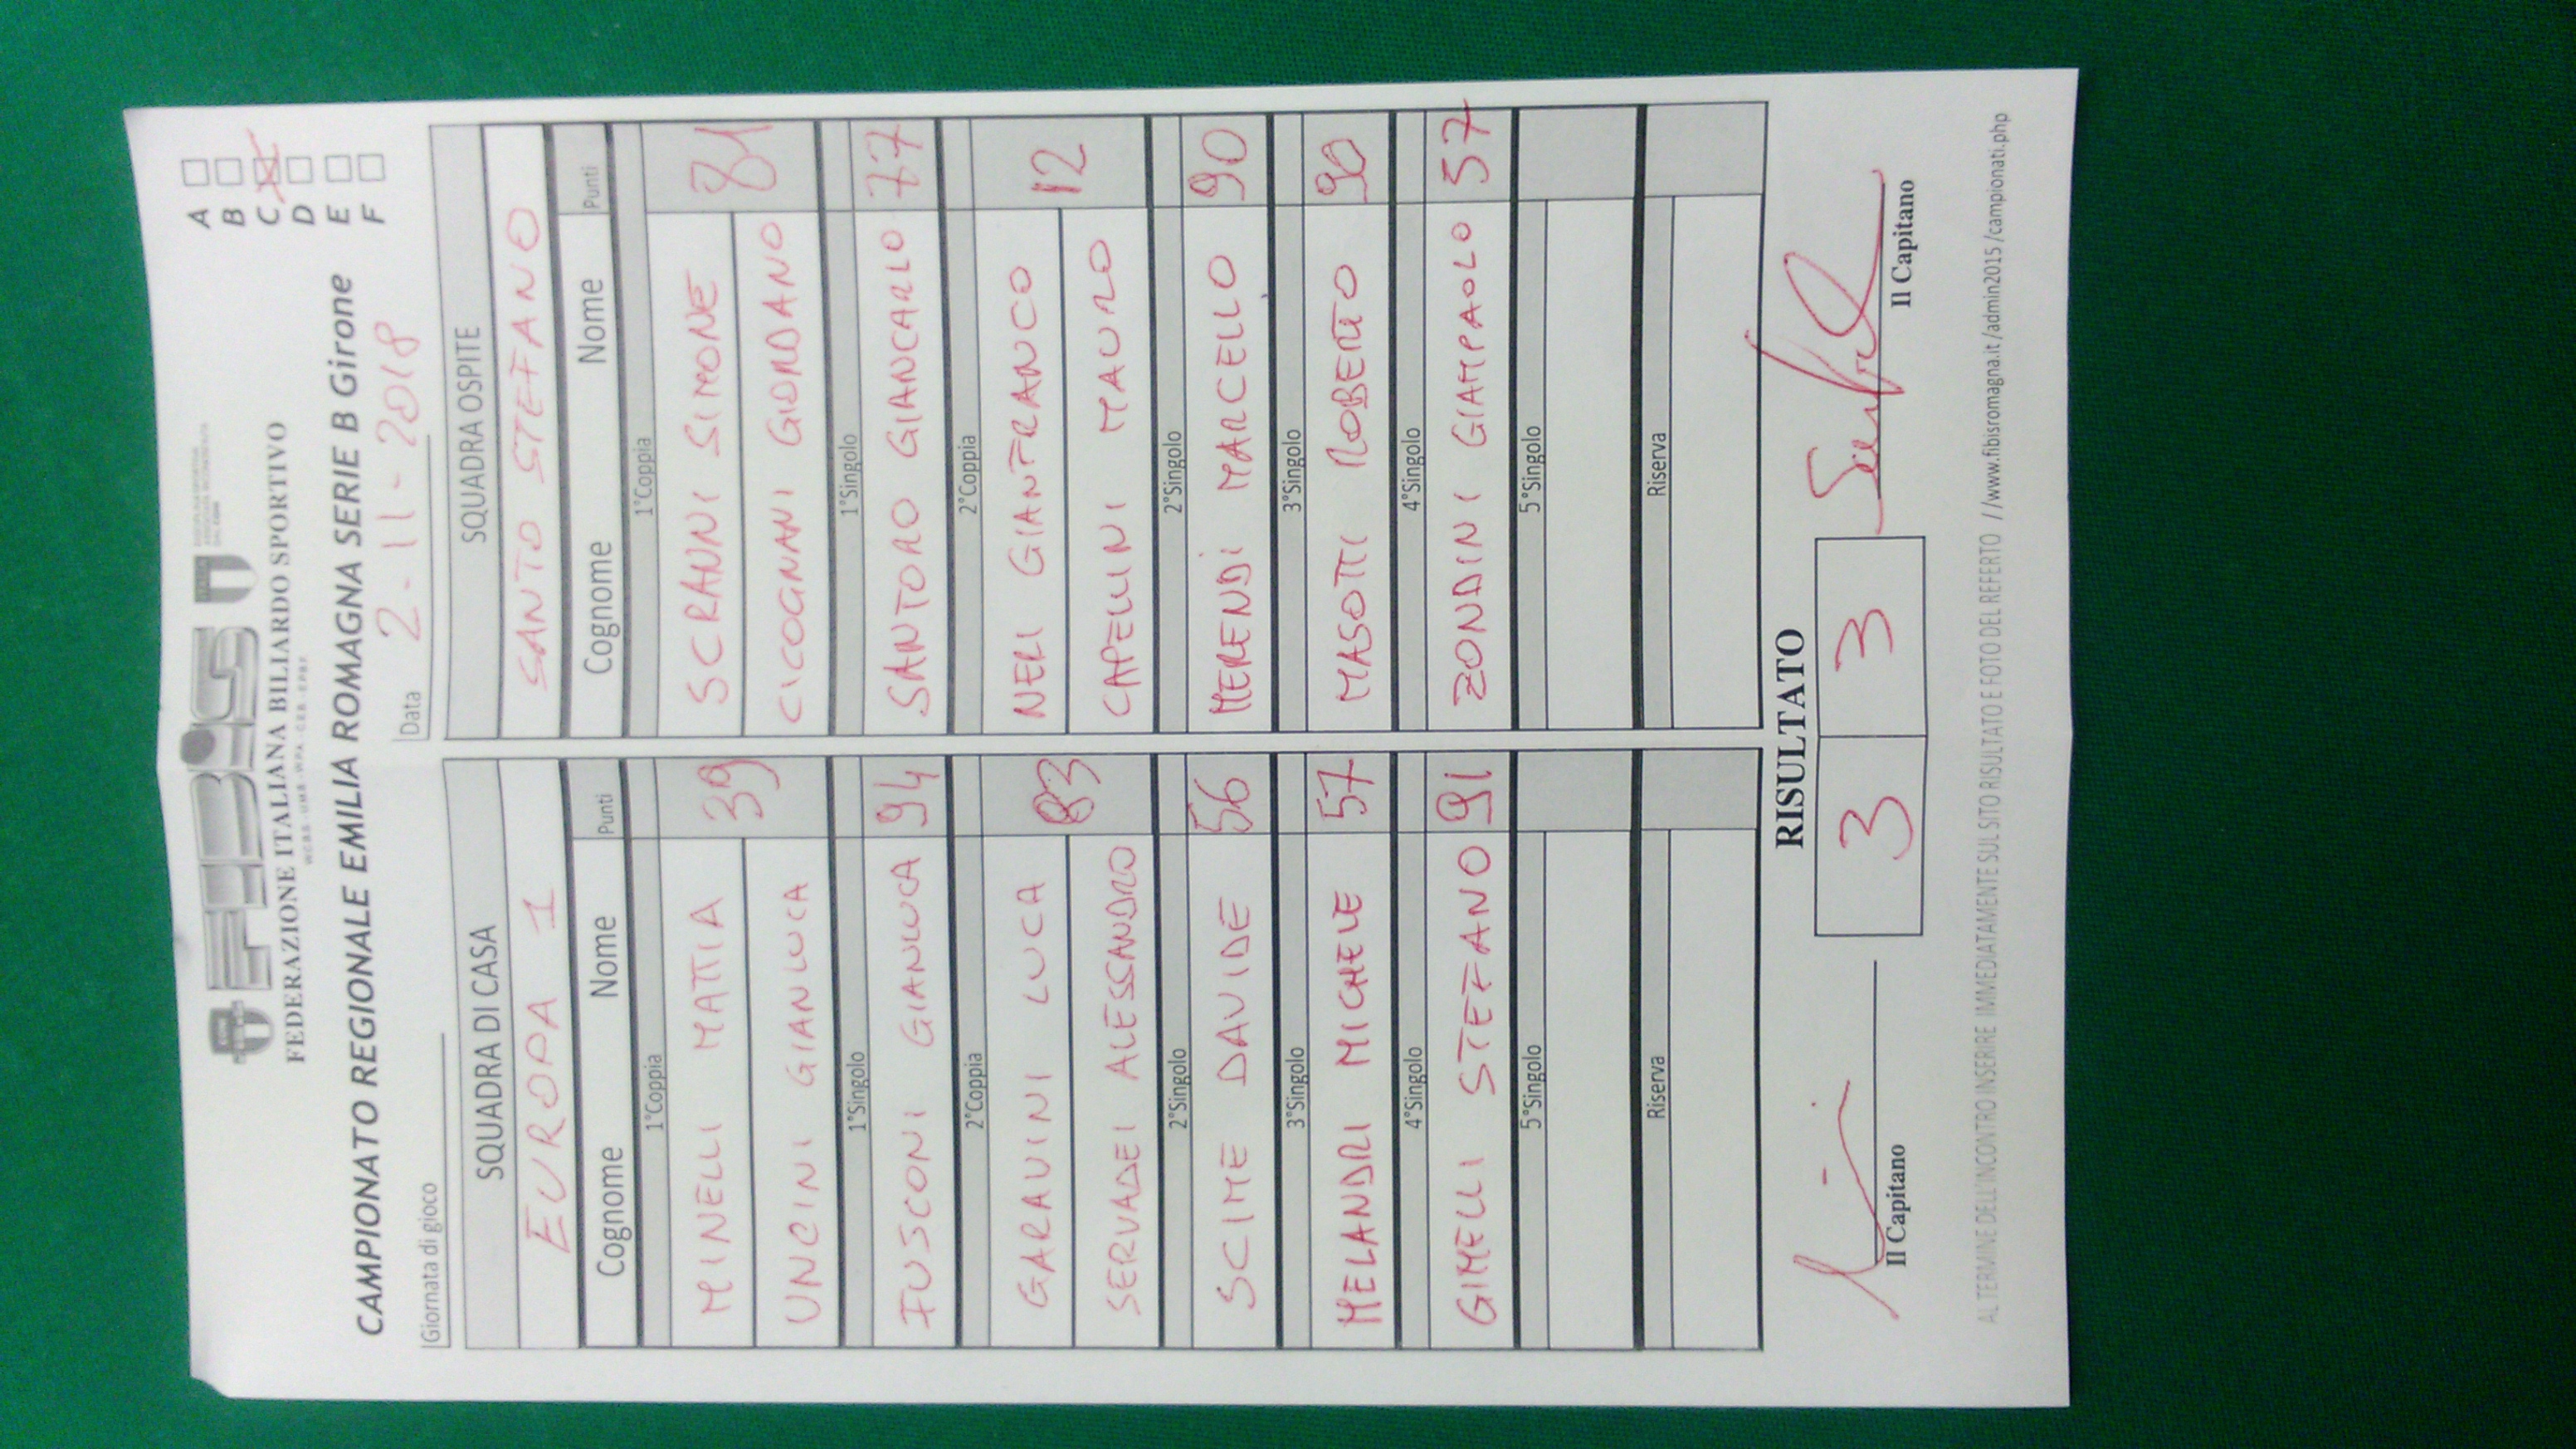 FEDERAZIONE ITALIANA BILIARDO SPORTIVO
CAMPIONATO REGIONALE EMILIA ROMAGNA SERIE B Girone
A
B
C
D
E
F
Giornata di gioco
Data 2-11-2018
SQUADRA DI CASA
EUROPA 1
Cognome Nome Punti
1°Coppia
MINELLI MATTIA 39
UNCINI GIANLUCA
1°Singolo
FUSCONI GIANLUCA 94
2°Coppia
GARAVINI LUCA 83
SERVADEI ALESSANDRO
2°Singolo
SCIME DAVIDE 56
3°Singolo
MELANDRI MICHELE 57
4°Singolo
GIMELLI STEFANO 91
5°Singolo
Riserva
SQUADRA OSPITE
SANTO STEFANO
Cognome Nome Punti
1°Coppia
SCRANNI SIMONE 81
CICOGNANI GIORDANO
1°Singolo
SANTORO GIANCARLO 77
2°Coppia
NERI GIANFRANCO 12
CAPELLINI MAURO
2°Singolo
MERENDi MARCELLO 90
3°Singolo
MASOTTI ROBERTO 90
4°Singolo
ZONDINI GIAMPAOLO 57
5°Singolo
Riserva
RISULTATO
3 3
Il Capitano
Il Capitano
AL TERMINE DELL'INCONTRO INSERIRE IMMEDIATAMENTE SUL SITO RISULTATO E FOTO DEL REFERTO //www.fibisromagna.it/admin2015/campionati.php